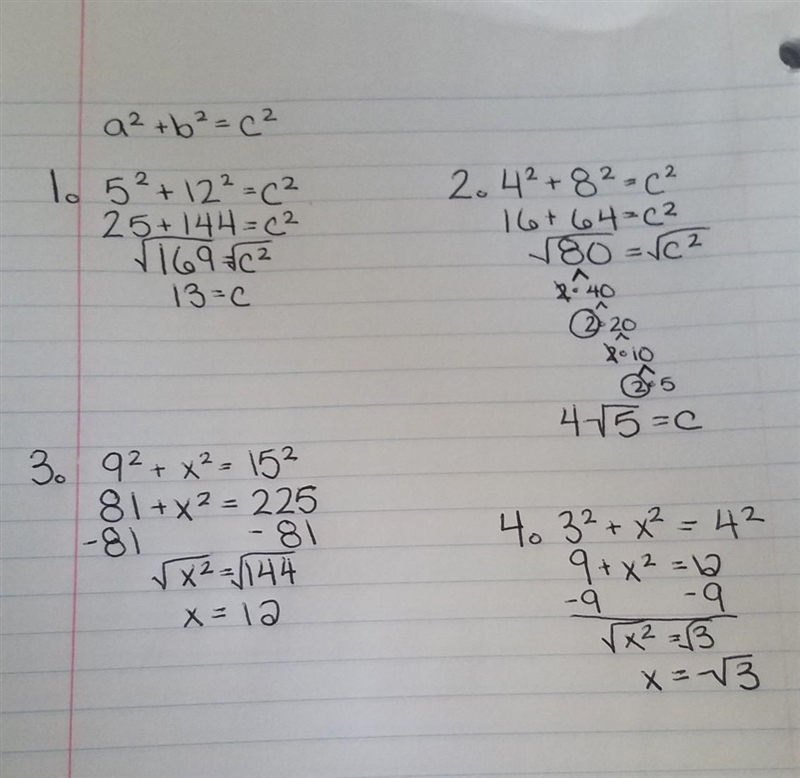 a² + b² = c²
1. 5² + 12² = c²
25 + 144 = c²
√169 = √c²
13 = c
2. 4² + 8² = c²
16 + 64 = c²
√80 = √c²
2 · 40
2 · 20
2 · 10
2 · 5
4√5 = c
3. 9² + x² = 15²
81 + x² = 225
-81 - 81
√x² = √144
x = 12
4. 3² + x² = 4²
9 + x² = 12
-9 -9
√x² = √3
x = √3